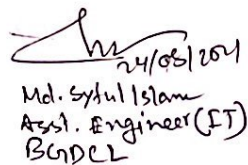 24/03/2021
Md. Syful Islam
Asst. Engineer (IT)
BGDCL